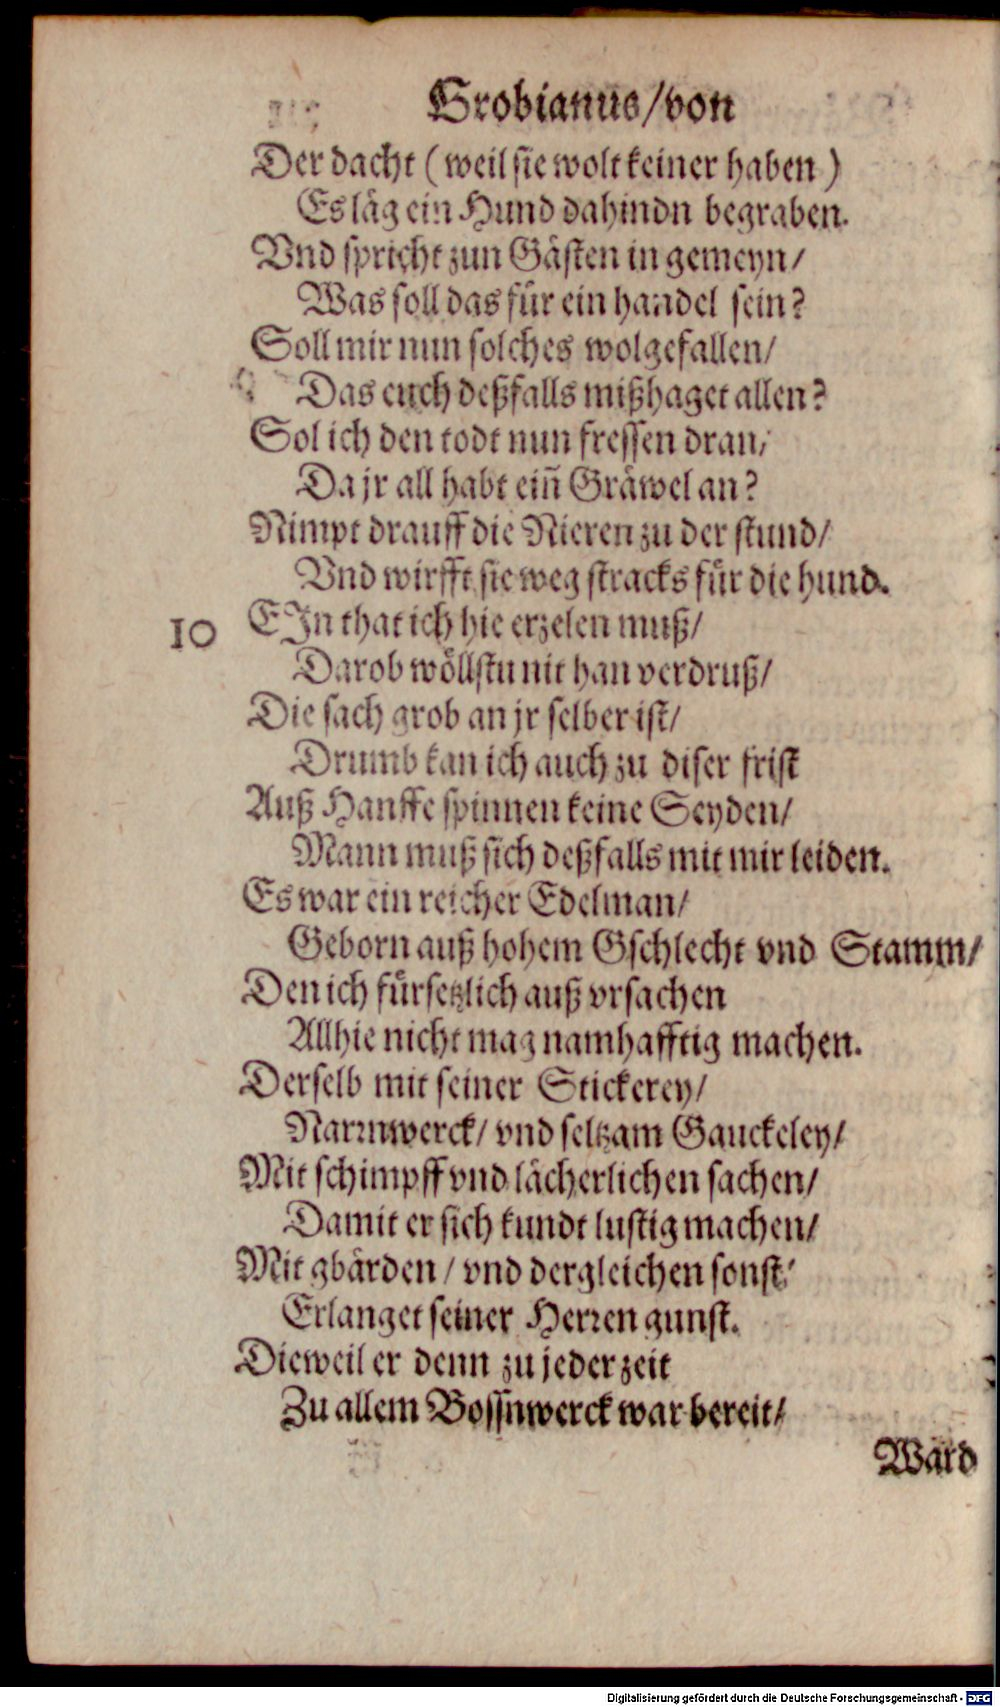 Grobianus/von
Der dacht (weil sie wolt keiner haben)
Es läg ein Hund dahindn begraben.
Vnd spricht zun Gästen in gemeyn/
Was soll das für ein handel sein?
Soll mir nun solches wolgefallen/
Das euch deßfalls mißhaget allen?
Sol ich den todt nun fressen dran/
Da jr all habt eiñ Gräwel an?
Nimpt drauff die Nieren zu der stund/
Vnd wirfft sie weg stracks für die hund.
10 EJn that ich hie erzelen muß/
Darob wöllstu nit han verdruß/
Die sach grob an jr selber ist/
Drumb kan ich auch zu diser frist
Auß Hanffe spinnen keine Seyden/
Mann muß sich deßfalls mit mir leiden.
Es war ein reicher Edelman/
Geborn auß hohem Gschlecht vnd Stamm/
Den ich fürsetzlich auß vrsachen
Allhie nicht mag namhafftig machen.
Derselb mit seiner Stickerey/
Narrnwerck/ vnd seltzam Gauckeley/
Mit schimpff vnd lächerlichen sachen/
Damit er sich kundt lustig machen/
Mit gbärden/ vnd dergleichen sonst/
Erlanget seiner Herren gunst.
Dieweil er denn zu jeder zeit
Zu allem Bossnwerck war bereit/
Ward
Digitalisierung gefördert durch die Deutsche Forschungsgemeinschaft - DFG